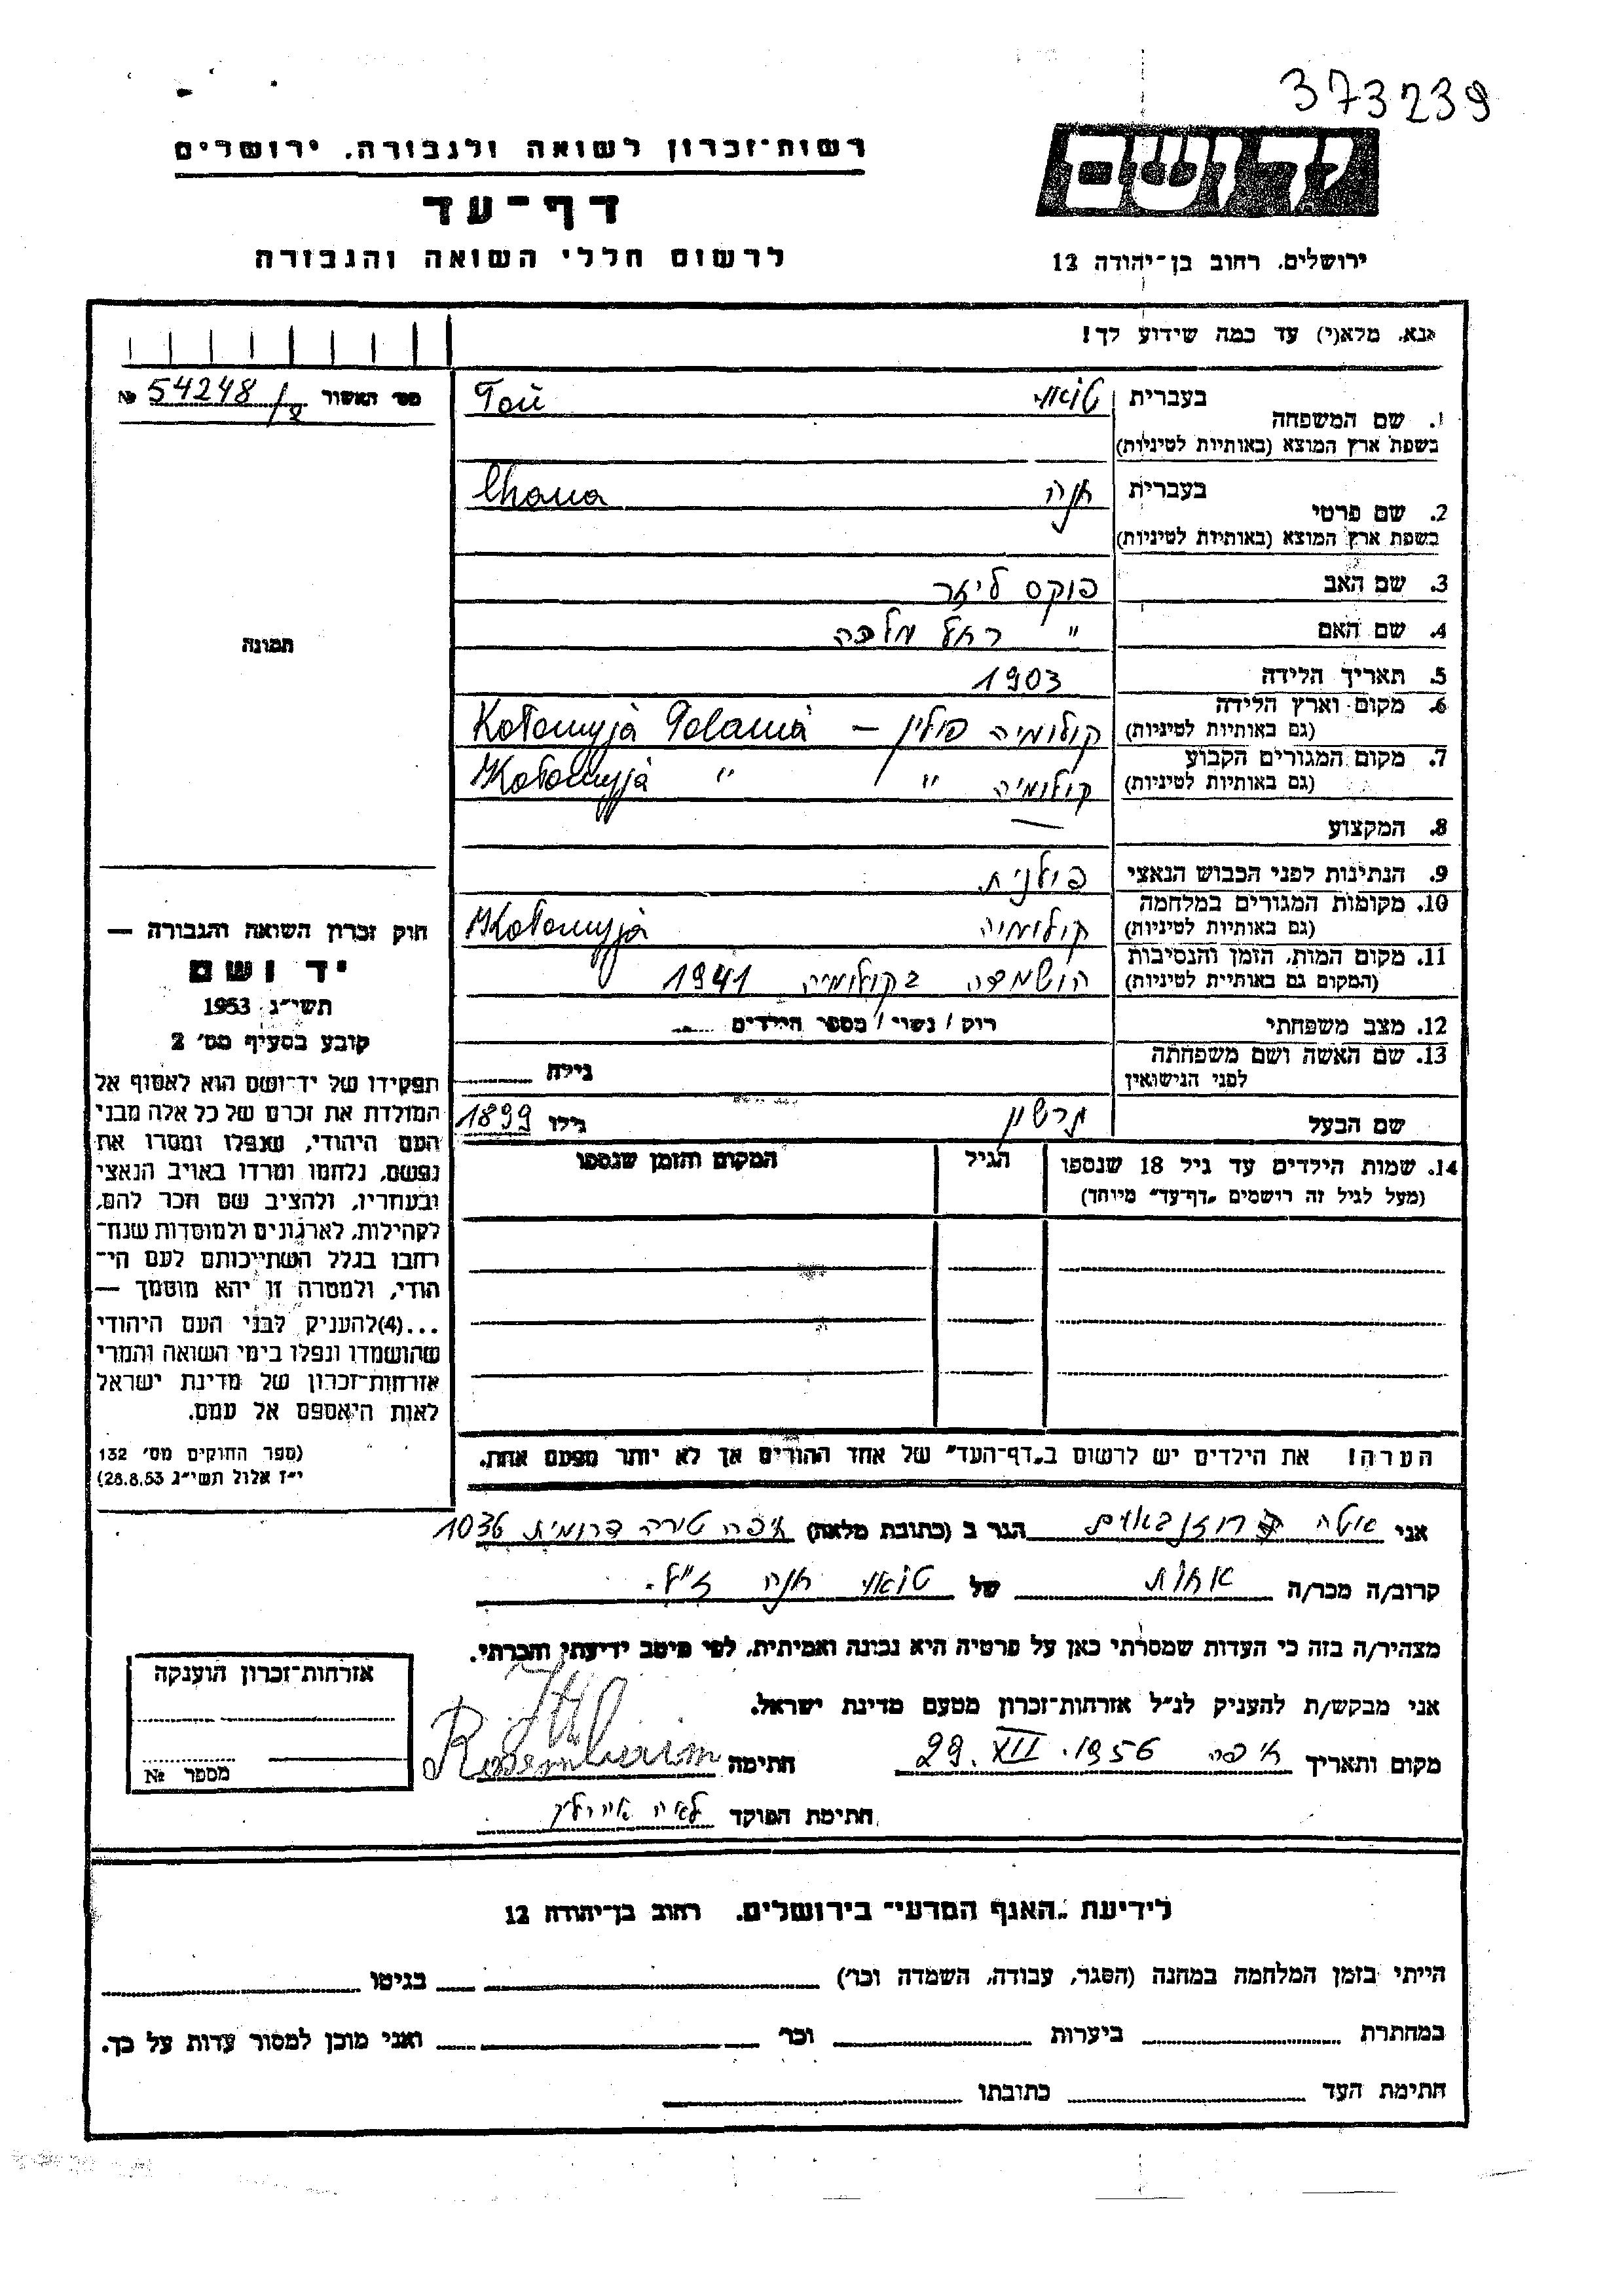 373239
ידושם
רשות־זכרון לשואה ולגבורה, ירושלים
דף־עד
לרשום חללי השואה והגבורה
ירושלים, רחוב בן־יהודה 12
אנא, מלא(י) עד כמה שידוע לך!
מס׳ האשור 54248/ № 
1. שם המשפחה בעברית טואי Toü
בשפת ארץ המוצא (באותיות לטיניות)
2. שם פרטי בעברית חנה Chana
בשפת ארץ המוצא (באותיות לטיניות)
3. שם האב פוקס ליזר
4. שם האם " רחל מלכה
תמונה
5. תאריך הלידה 1903
6. מקום וארץ הלידה קולומיה פולין – Kołomyjà
(גם באותיות לטיניות)
7. מקום המגורים הקבוע קולומיה " " Kołomyjà
(גם באותיות לטיניות)
8. המקצוע —
9. הנתינות לפני הכבוש הנאצי פולנית
10. מקומות המגורים במלחמה קולומיה Kołomyjà
(גם באותיות לטיניות)
11. מקום המות, הזמן והנסיבות הושמדה בקולומיה 1941
(המקום גם באותיות לטיניות)
12. מצב משפחתי רוק / נשוי / מספר הילדים
13. שם האשה ושם משפחתה
לפני הנישואין גילה
שם הבעל גילו 1899
14. שמות הילדים עד גיל 18 שנספו הגיל המקום והזמן שנספו
(מעל לגיל זה רושמים „דף־עד" מיוחד)
הערה! את הילדים יש לרשום ב„דף־העד" של אחד ההורים אך לא יותר מפעם אחת.
חוק זכרון השואה והגבורה —
יד ושם
תשי״ג 1953
קובע בסעיף מס׳ 2
תפקידו של יד־ושם הוא לאסוף אל
המולדת את זכרם של כל אלה מבני
העם היהודי, שנפלו ומסרו את
נפשם, נלחמו ומרדו באויב הנאצי
ובעוזריו, ולהציב שם וזכר להם,
לקהילות, לארגונים ולמוסדות שנח־
רבו בגלל השתייכותם לעם הי־
הודי, ולמטרה זו יהא מוסמך —
...(4)להעניק לבני העם היהודי
שהושמדו ונפלו בימי השואה והמרי
אזרחות־זכרון של מדינת ישראל
לאות היאספם אל עמם.
(ספר החוקים מס׳ 132
י״ז אלול תשי״ג 28.8.53)
אני איטה רוזנבאום הגר ב (כתובת מלאה) חיפה טירה דרומית 1036
קרוב/ה מכר/ה אחות של טואי חנה ז״ל.
מצהיר/ה בזה כי העדות שמסרתי כאן על פרטיה היא נכונה ואמיתית, לפי מיטב ידיעתי והכרתי.
אני מבקש/ת להעניק לנ״ל אזרחות־זכרון מטעם מדינת ישראל.
מקום ותאריך חיפה 29. XII. 1956 חתימה
חתימת הפוקד לאה
אזרחות־זכרון הוענקה
מספר №
לידיעת „האגף המדעי" בירושלים, רחוב בן־יהודה 12
הייתי בזמן המלחמה במחנה (הסגר, עבודה, השמדה וכר׳) בגיטו
במחתרת ביערות וכר׳ ואני מוכן למסור עדות על כך.
חתימת העד כתובתו